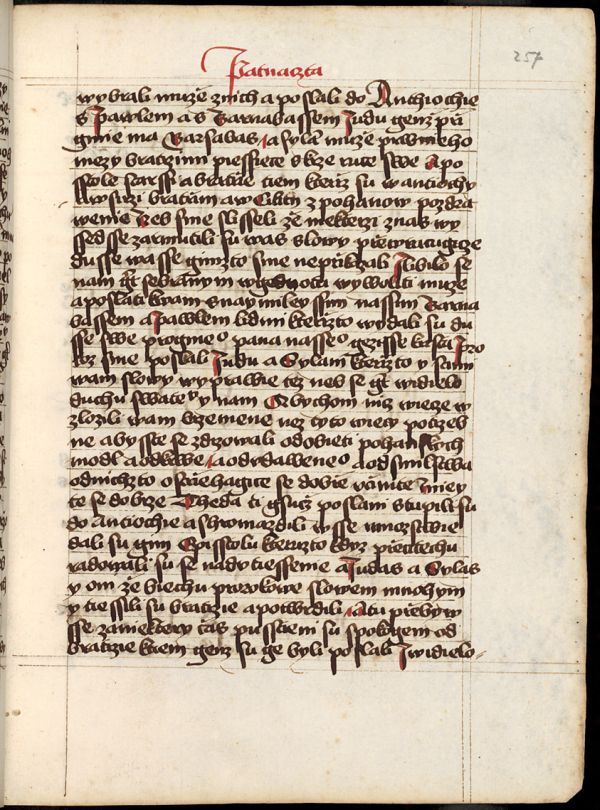 257
Patnaczta
wybrali muże znich a poslali do Anthiochie
s Pawlem a s Barnabassem Judu genż přij
gmie ma Barsabas a sylā muże prwnieho
mezy bratrzimi piessicte skrze ruce swe Apo
sstole starssi a bratrie tiem kteříż su w antiochy
A w sirzi bratřiam a w Cilicii z pohanow pozdra
wenie Neb sme slisseli że niekterzi znas wy
ssedsse zarmutili su was slowy přewracugicze
dusse wasse gimżto sme nepřikazali Jlibilo se
nam gt sebranym w gednotu wywoliti muże
a poslati kwam s naymileyssimi nassimi Barna
bassem a Pawlem lidmi kterizto wydali su du
sse swe progmeo pana nasseo geżisse krista Pro
toż sme poslali Judu a Sylam kterżto y sami
wam slowy wyprawie też neb se gt widielo
duchu swatey y nam Abychom nicz wiecze w
zlożili wam brzemene neż tyto wiecy potřeb
ne abysste se zdrżowali od obieti pohanskych
modl a od krwe a od vdaweneo a od smilstwa
od nichżto ostřiehagice se dobře vcinite Miey
te se dobrze Tehda ti gsuc poslani stupili su
do antiochie a shromazdili wsse mnożstwie
dali su gim Episstolu kteruzto kdyż přectechu
radowali su se nad vtiessenie A Judas a Sylas
y oni że biechu prorokowe slowem mnohym
y tiessili su bratrzie a potwrdili A tu přebyw
sse za niektery čas pusstieni su spokogem od
bratrzie kniem genż su ge byli poslali J widielo